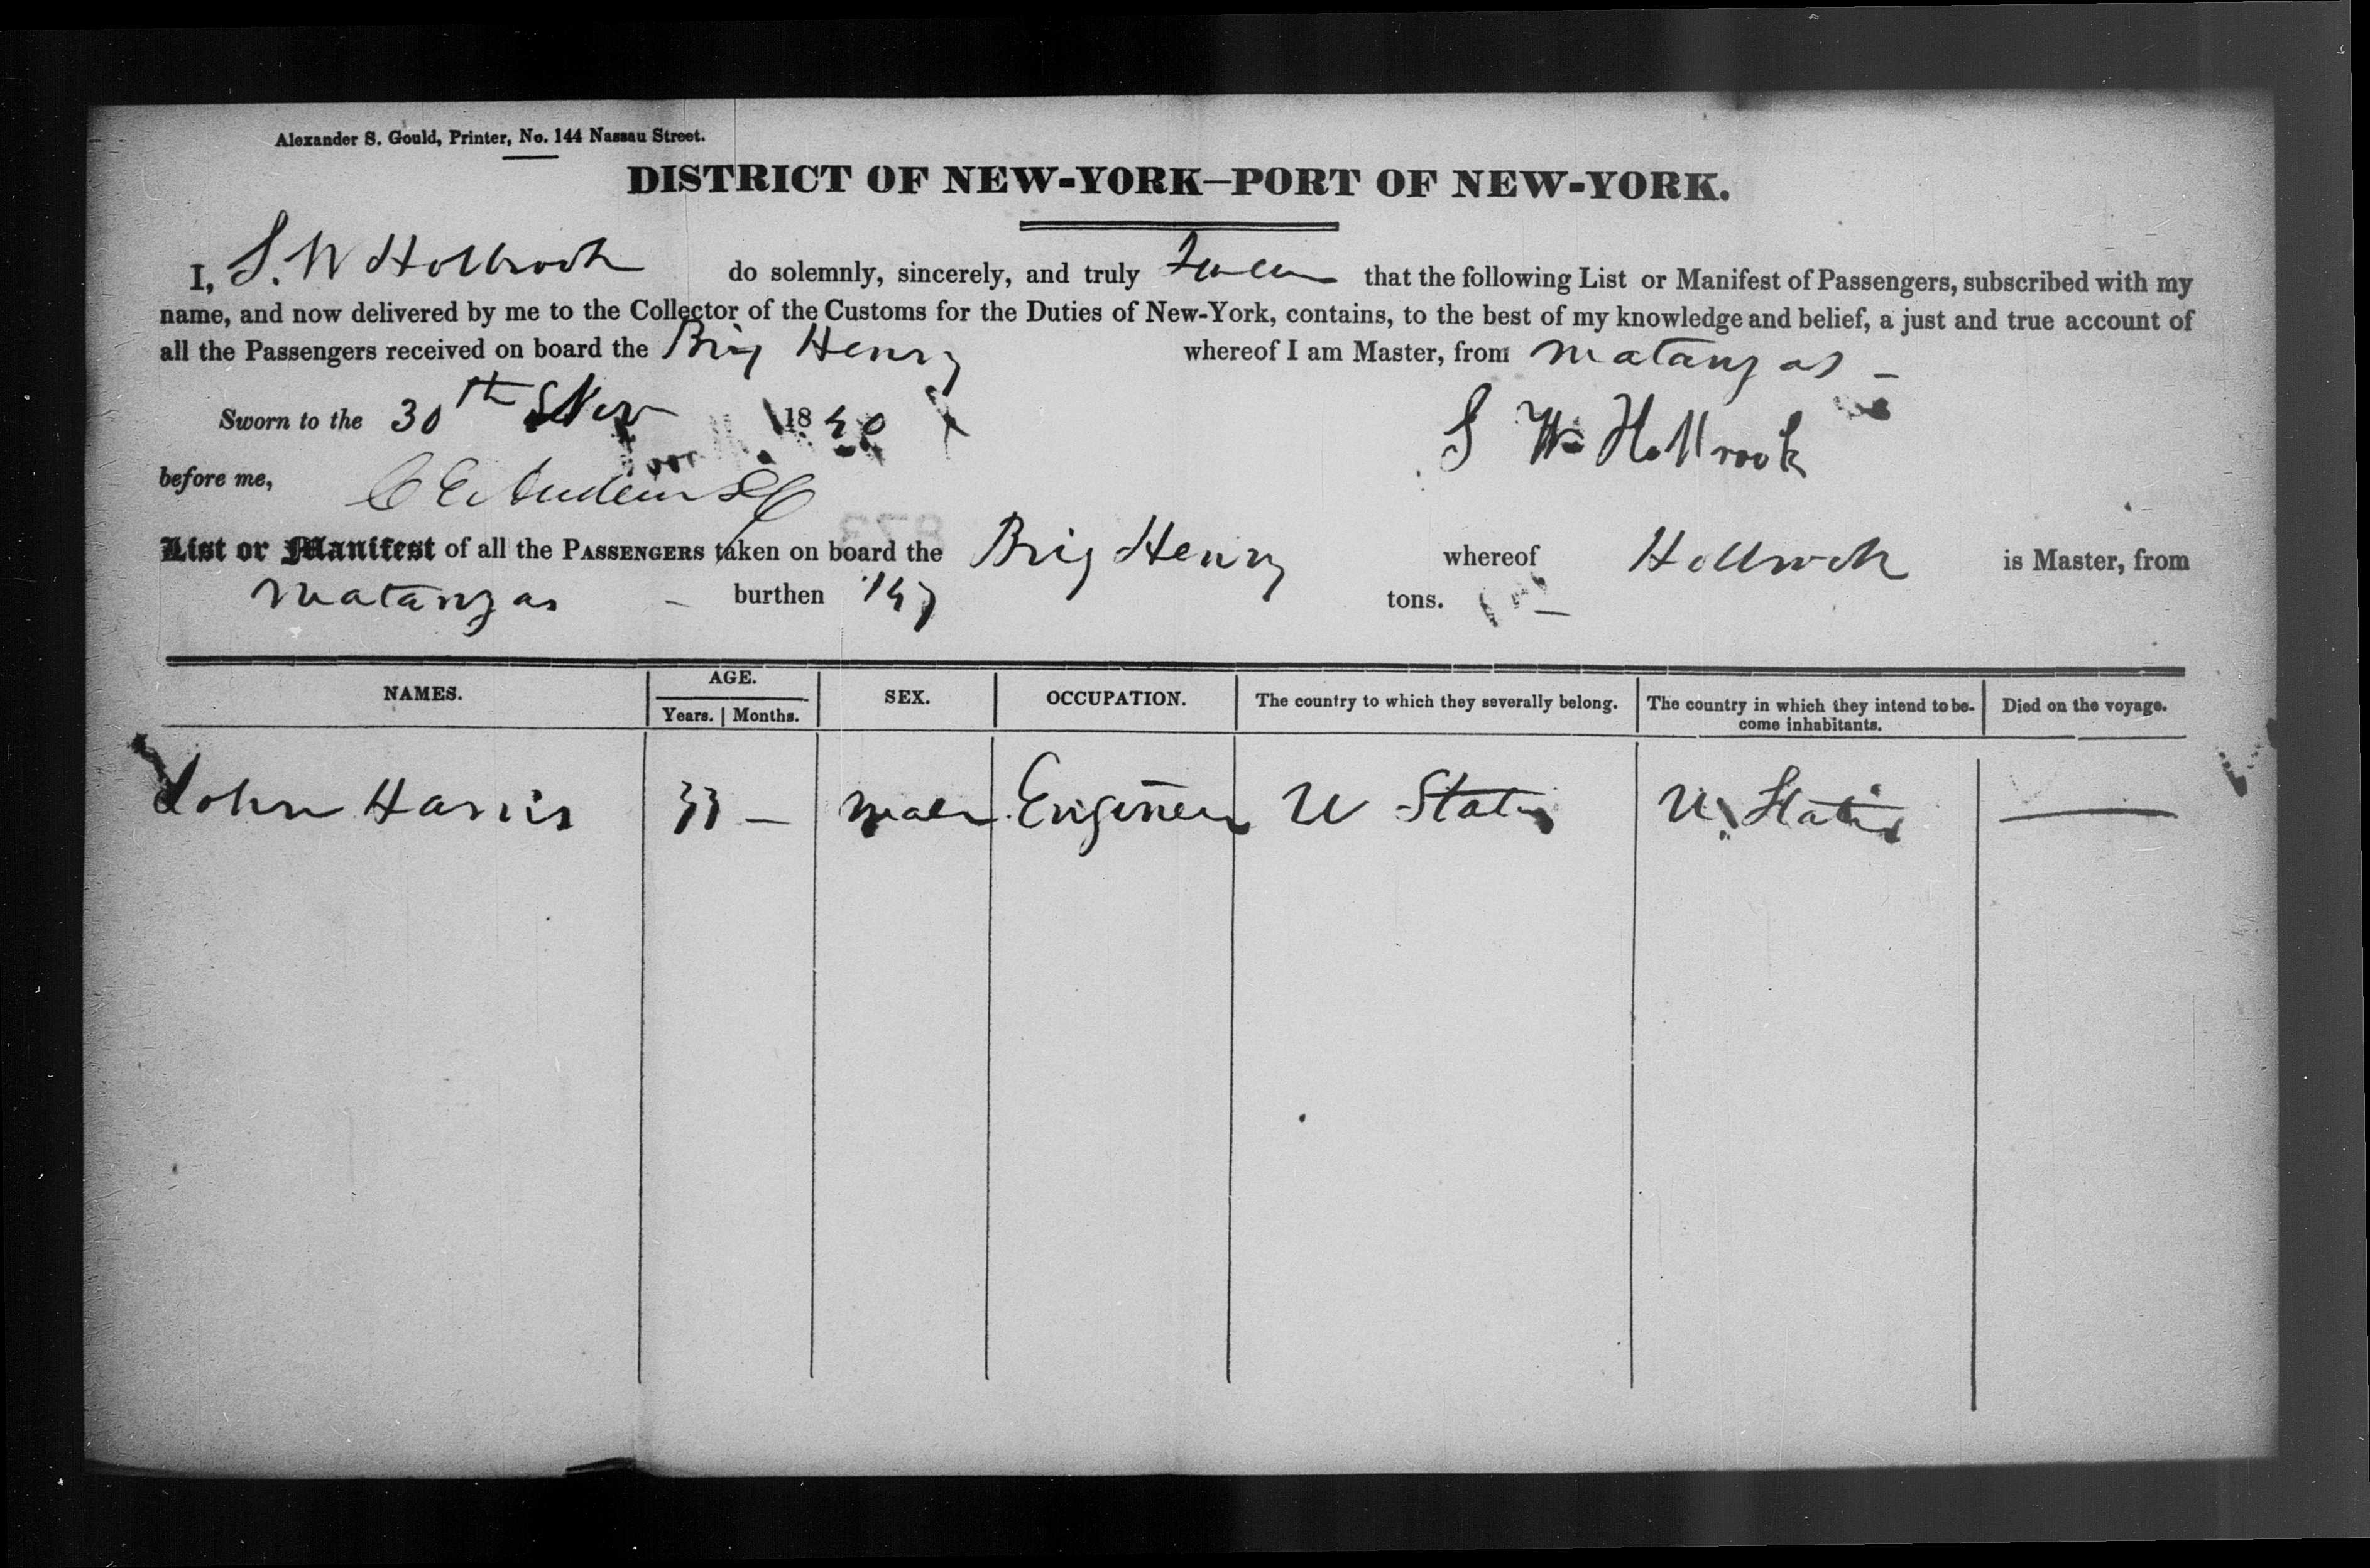 Alexander S. Gould, Printer, No. 144 Nassau Street.
DISTRICT OF NEW-YORK—PORT OF NEW-YORK.
I, S. W Holbrook do solemnly, sincerely, and truly Swear that the following List or Manifest of Passengers, subscribed with my
name, and now delivered by me to the Collector of the Customs for the Duties of New-York, contains, to the best of my knowledge and belief, a just and true account of
all the Passengers received on board the Brig Henry whereof I am Master, from Matanzas
Sworn to the 30th Nov 18
S W Holbrook
before me,
List or Manifest of all the PASSENGERS taken on board the Brig Henry whereof Holbrook is Master, from
Matanzas - burthen 147 tons.
NAMES. AGE. SEX. OCCUPATION. The country to which they severally belong. The country in which they intend to be- Died on the voyage.
Years. Months. come inhabitants.
John Harris 33 — male Engineer U States U. States —